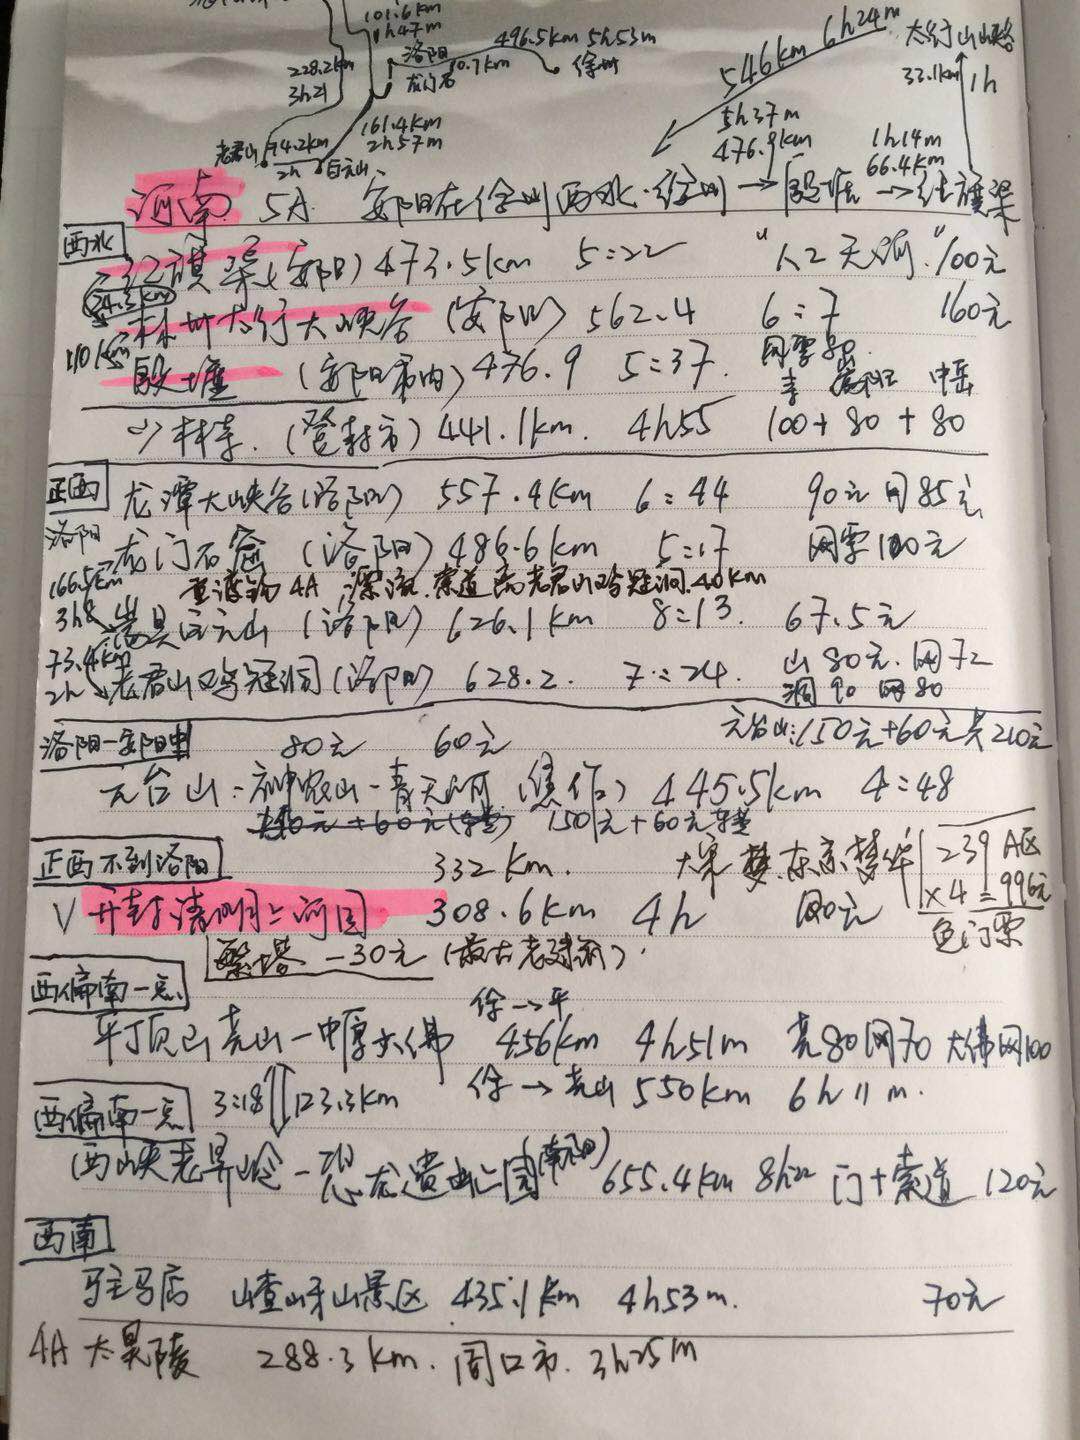 101.6km
1h47m
洛阳
496.5km 5h53m
徐州
龙门石
10.7km
228.2km
3h21
161.4km
2h57m
老君山
94.2km
2h
白云山
546km 6h24m
太行山大峡谷
33.1km 1h
5h37m
476.9km
1h14m
66.4km
河南 5A 安阳在徐州西北·徐州→殷墟→红旗渠
西北
红旗渠(安阳) 473.5km 5:22 "人工天河" 100元
34.3km
林州太行大峡谷 (安阳) 562.4 6:7 160元
殷墟 (安阳市内) 476.9 5:37
网票
中岳
少林寺. (登封市) 441.1km. 4h55 100+80+80
正西
龙潭大峡谷(洛阳) 557.4km 6:44 90元 网85元
洛阳
龙门石窟 (洛阳) 486.6km 5:17 网票100元
166.5km
重渡沟 4A 漂流.索道 离老君山鸡冠洞.40km
3h8
嵩县白云山 (洛阳) 626.1km 8:13. 67.5元
73.4km
2h
老君山鸡冠洞(洛阳) 628.2. 7:24. 山80元.网72
洞90 网80
洛阳-安阳中
80元 60元
云台山:150元+60元共210元
云台山-神农山-青天河(焦作) 445.5km 4:48
150元+60元
正西不到洛阳
332km. 大宋·东京梦华 239 A区
V 开封清明上河园 308.6km 4h
x4=996元
免门票
繁塔-30元 (最古老建筑).
西偏南一点
徐→平
平顶山尧山-中原大佛 456km 4h51m 尧80网70 大佛网100
徐→尧山 550km 6h11m.
西偏南一点
3:18 123.3km
西峡老界岭-恐龙遗迹园(南阳) 655.4km 8h22 门+索道 120元
西南
驻马店 嵖岈山景区 435.1km 4h53m. 70元
4A 太昊陵 288.3km. 周口市. 3h25m